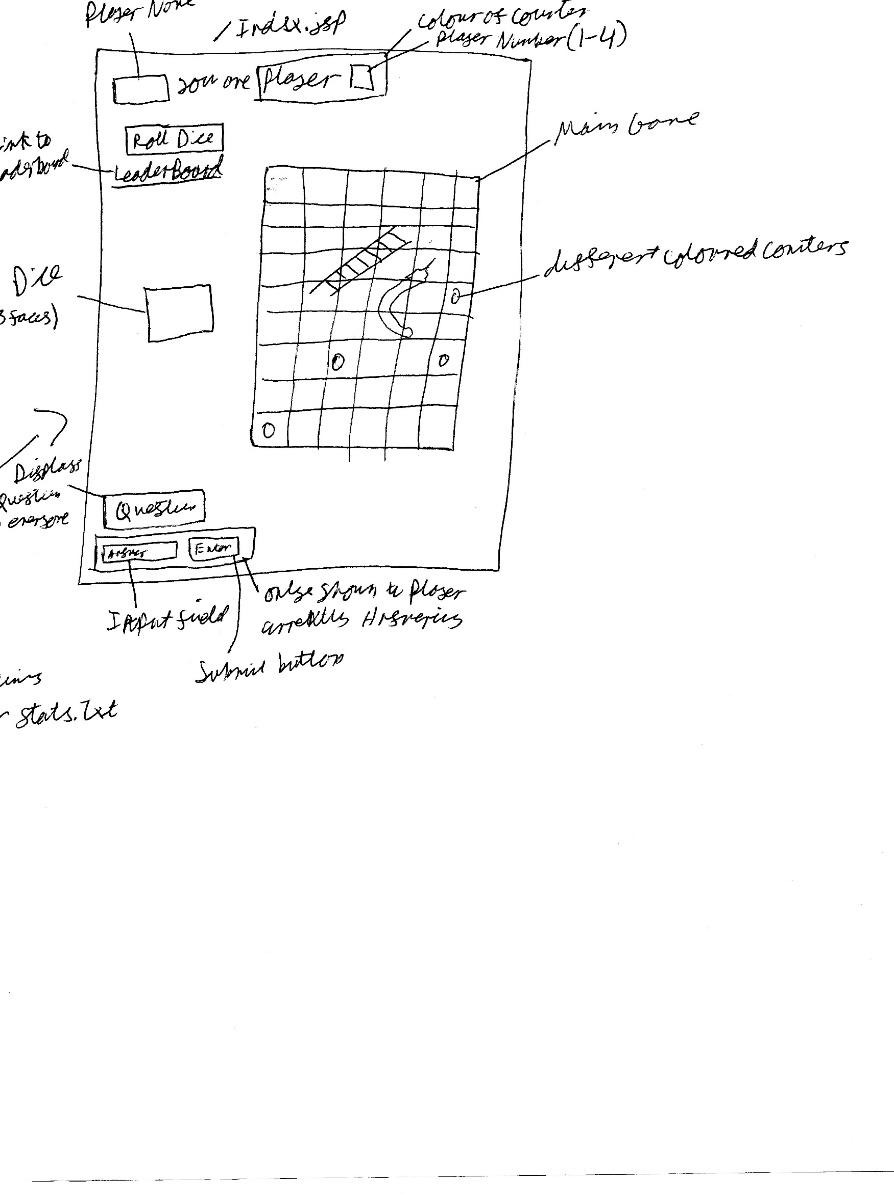 Player Name
/Index.jsp
colour of counter
Player Number (1-4)
you are Player
ink to
aderboard
Roll Dice
LeaderBoard
Main game
different coloured counters
Dice
faces)
Displays
Question
everyone
Question
Answer
Enter
Input field
only shown to Player
currently Answering
Submit button
stats.txt